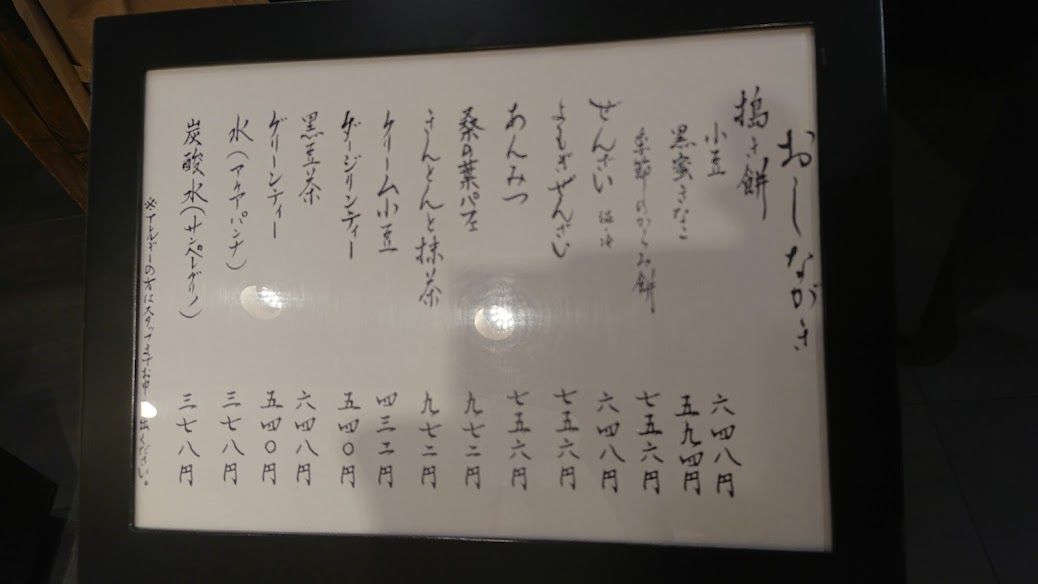 おしながき
搗き餅
小豆 六四八円
黒蜜きなこ 五九四円
季節のからみ餅 七五六円
ぜんざい 温・冷 六四八円
よもぎぜんざい 七五六円
あんみつ 七五六円
桑の葉パフェ 九七二円
きんとんと抹茶 九七二円
クリーム小豆 四三二円
ダージリンティー 五四〇円
黒豆茶 六四八円
グリーンティー 五四〇円
水(アクアパンナ) 三七八円
炭酸水(サンペレグリノ) 三七八円
※アレルギーの方はスタッフまでお申し出ください。